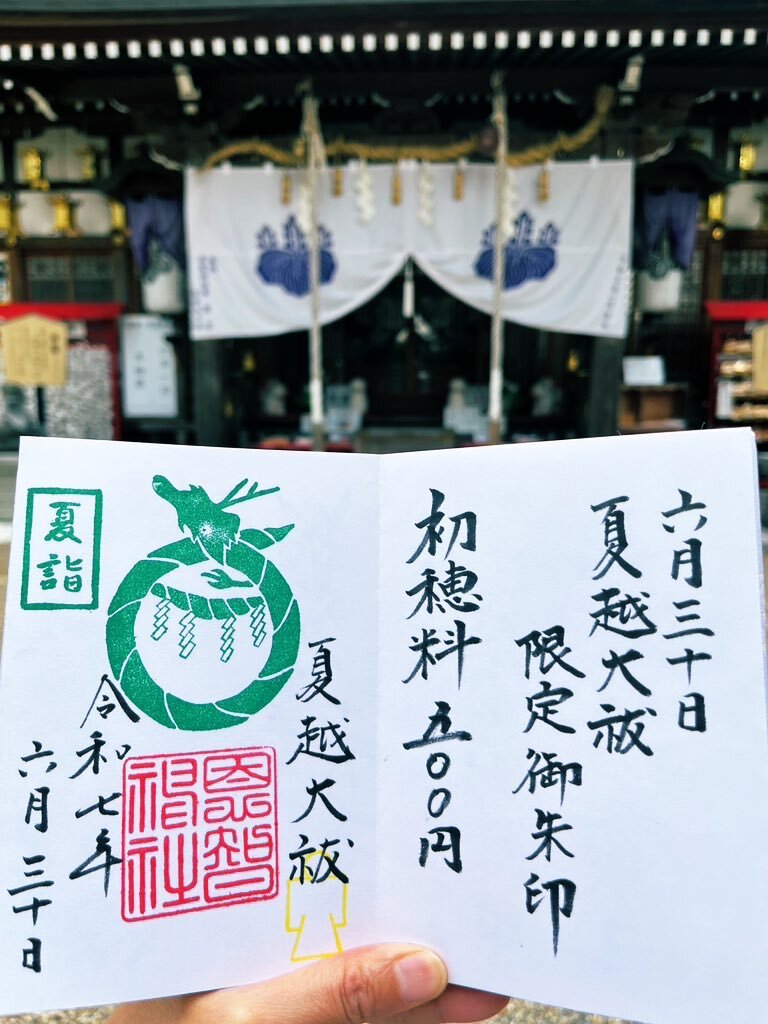 六月三十日
夏越大祓
限定御朱印
初穂料 五〇〇円
夏越大祓
恩智神社
夏詣
令和七年
六月三十日